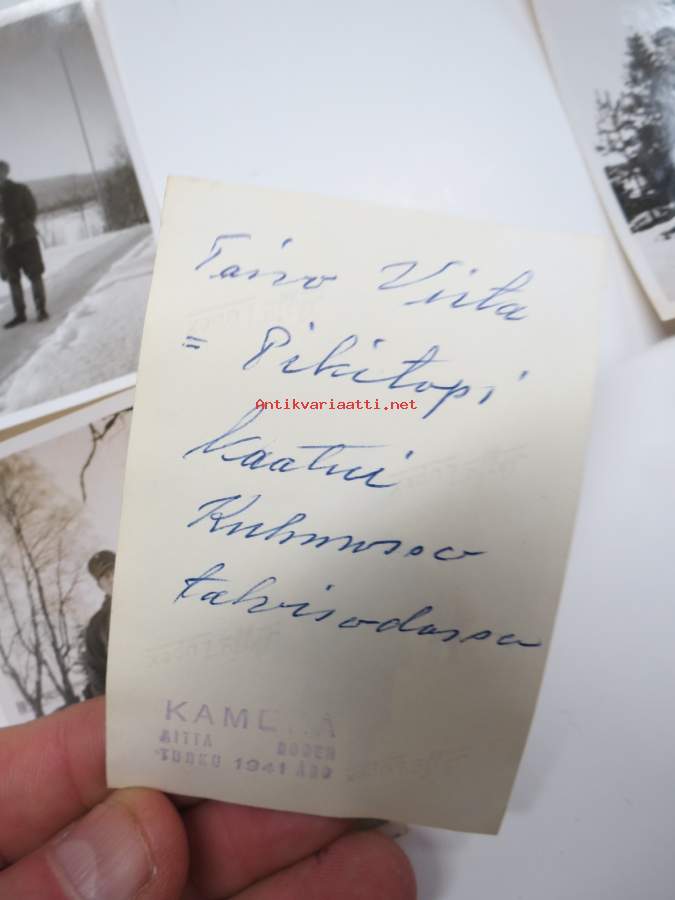 Taivo Virta
= Pikitopi
Antikvariaatti.net
kaatui
Kuhmossa
talvisodassa
KAMERA
AITTA BODEN
TURKU 1941 ÅBO